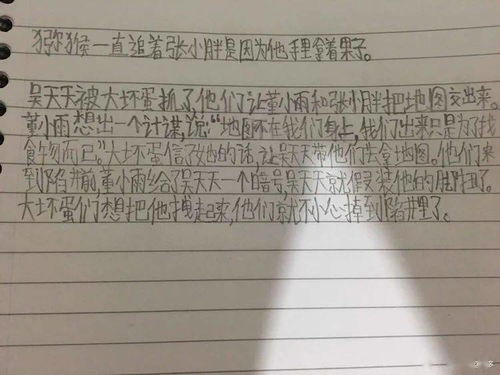 猕猴一直追着张小胖是因为他手里拿着果子。
吴天天被大坏蛋抓了,他们让董小雨和张小胖把地图交出来。
董小雨想出一个计谋,说:“地图不在我们身上,我们出来只是为了找
食物而已。”大坏蛋信了她的话,让吴天带他们去拿地图。他们来
到陷井前,董小雨给了吴天天一个暗号,吴天天就假装他的脚扭了。
大坏蛋们想把他拽起来,他们就不小心掉到陷井里了。